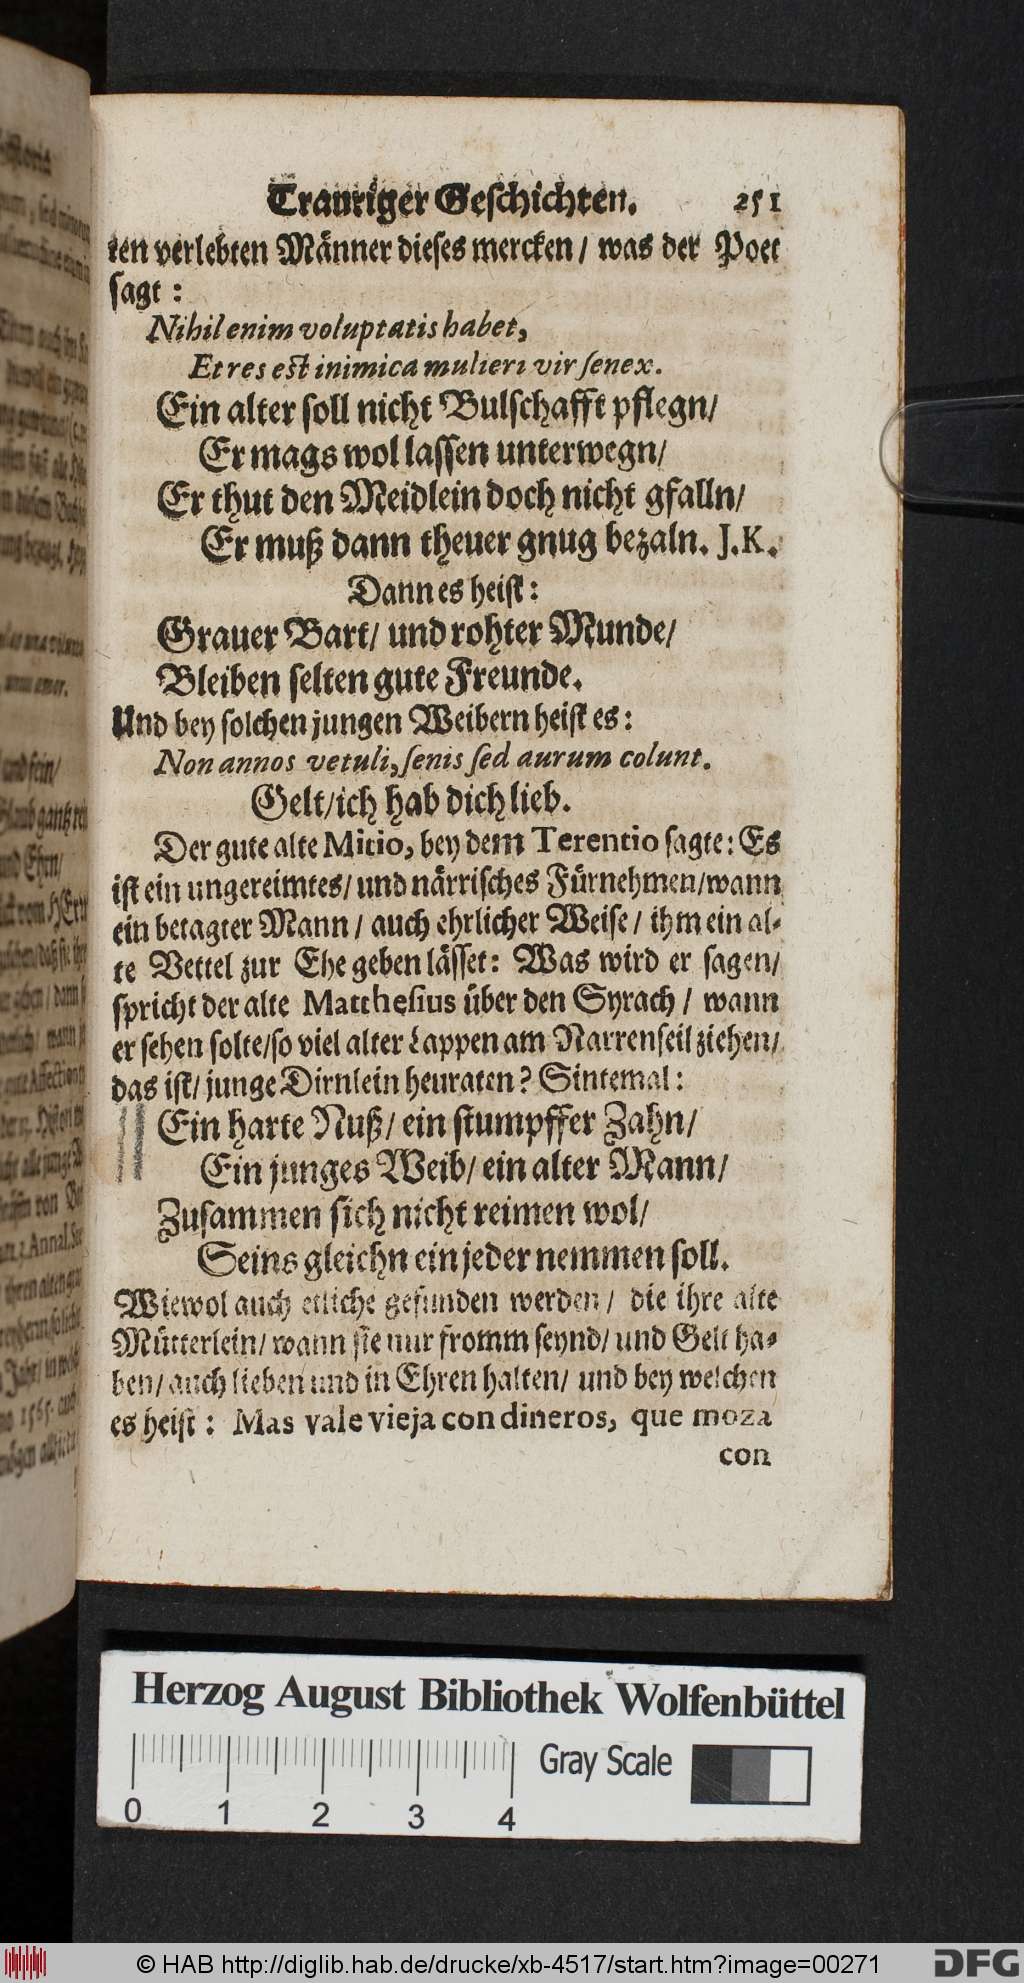 Trauriger Geschichten. 251
ten verlebten Männer dieses mercken / was der Poet
sagt :
Nihil enim voluptatis habet,
Et res est inimica mulieri vir senex.
Ein alter soll nicht Bulschafft pflegn/
Er mags wol lassen unterwegn/
Er thut den Meidlein doch nicht gfalln/
Er muß dann theuer gnug bezaln. J.K.
Dann es heist :
Grauer Bart/ und rohter Munde/
Bleiben selten gute Freunde.
Und bey solchen jungen Weibern heist es :
Non annos vetuli, senis sed aurum colunt.
Gelt/ich hab dich lieb.
Der gute alte Mitio, bey dem Terentio sagte: Es
ist ein ungereimtes/ und närrisches Fürnehmen/wann
ein betagter Mann / auch ehrlicher Weise / ihm ein al-
te Vettel zur Ehe geben lässet: Was wird er sagen/
spricht der alte Matthesius über den Syrach / wann
er sehen solte/so viel alter Lappen am Narrenseil ziehen/
das ist/ junge Dirnlein heuraten? Sintemal :
Ein harte Nuß/ ein stumpffer Zahn/
Ein junges Weib/ ein alter Mann/
Zusammen sich nicht reimen wol/
Seins gleichn ein jeder nemmen soll.
Wiewol auch etliche gefunden werden / die ihre alte
Mütterlein/ wann sie nur fromm seynd/ und Gelt ha-
ben/ auch lieben und in Ehren halten/ und bey welchen
es heist : Mas vale vieja con dineros, que moza
con
Herzog August Bibliothek Wolfenbüttel
Gray Scale
0 1 2 3 4
© HAB http://diglib.hab.de/drucke/xb-4517/start.htm?image=00271
DFG